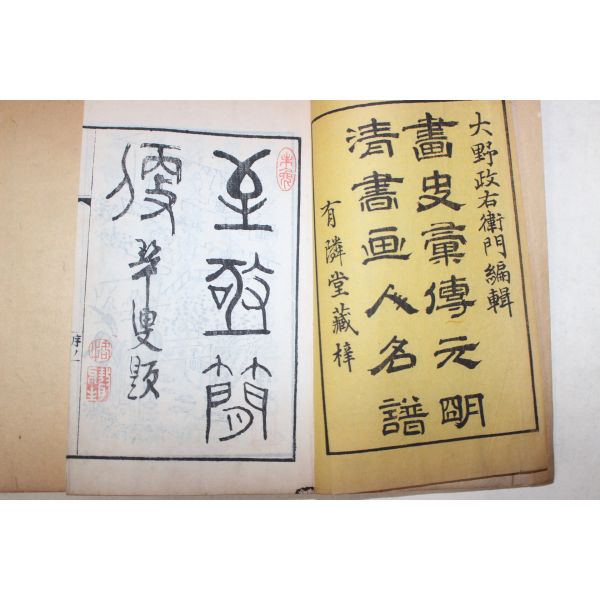 大野政右衛門編輯
畫史彙傳元明
清書画人名譜
有隣堂藏梓
至敬簡
叟題
序ノ一